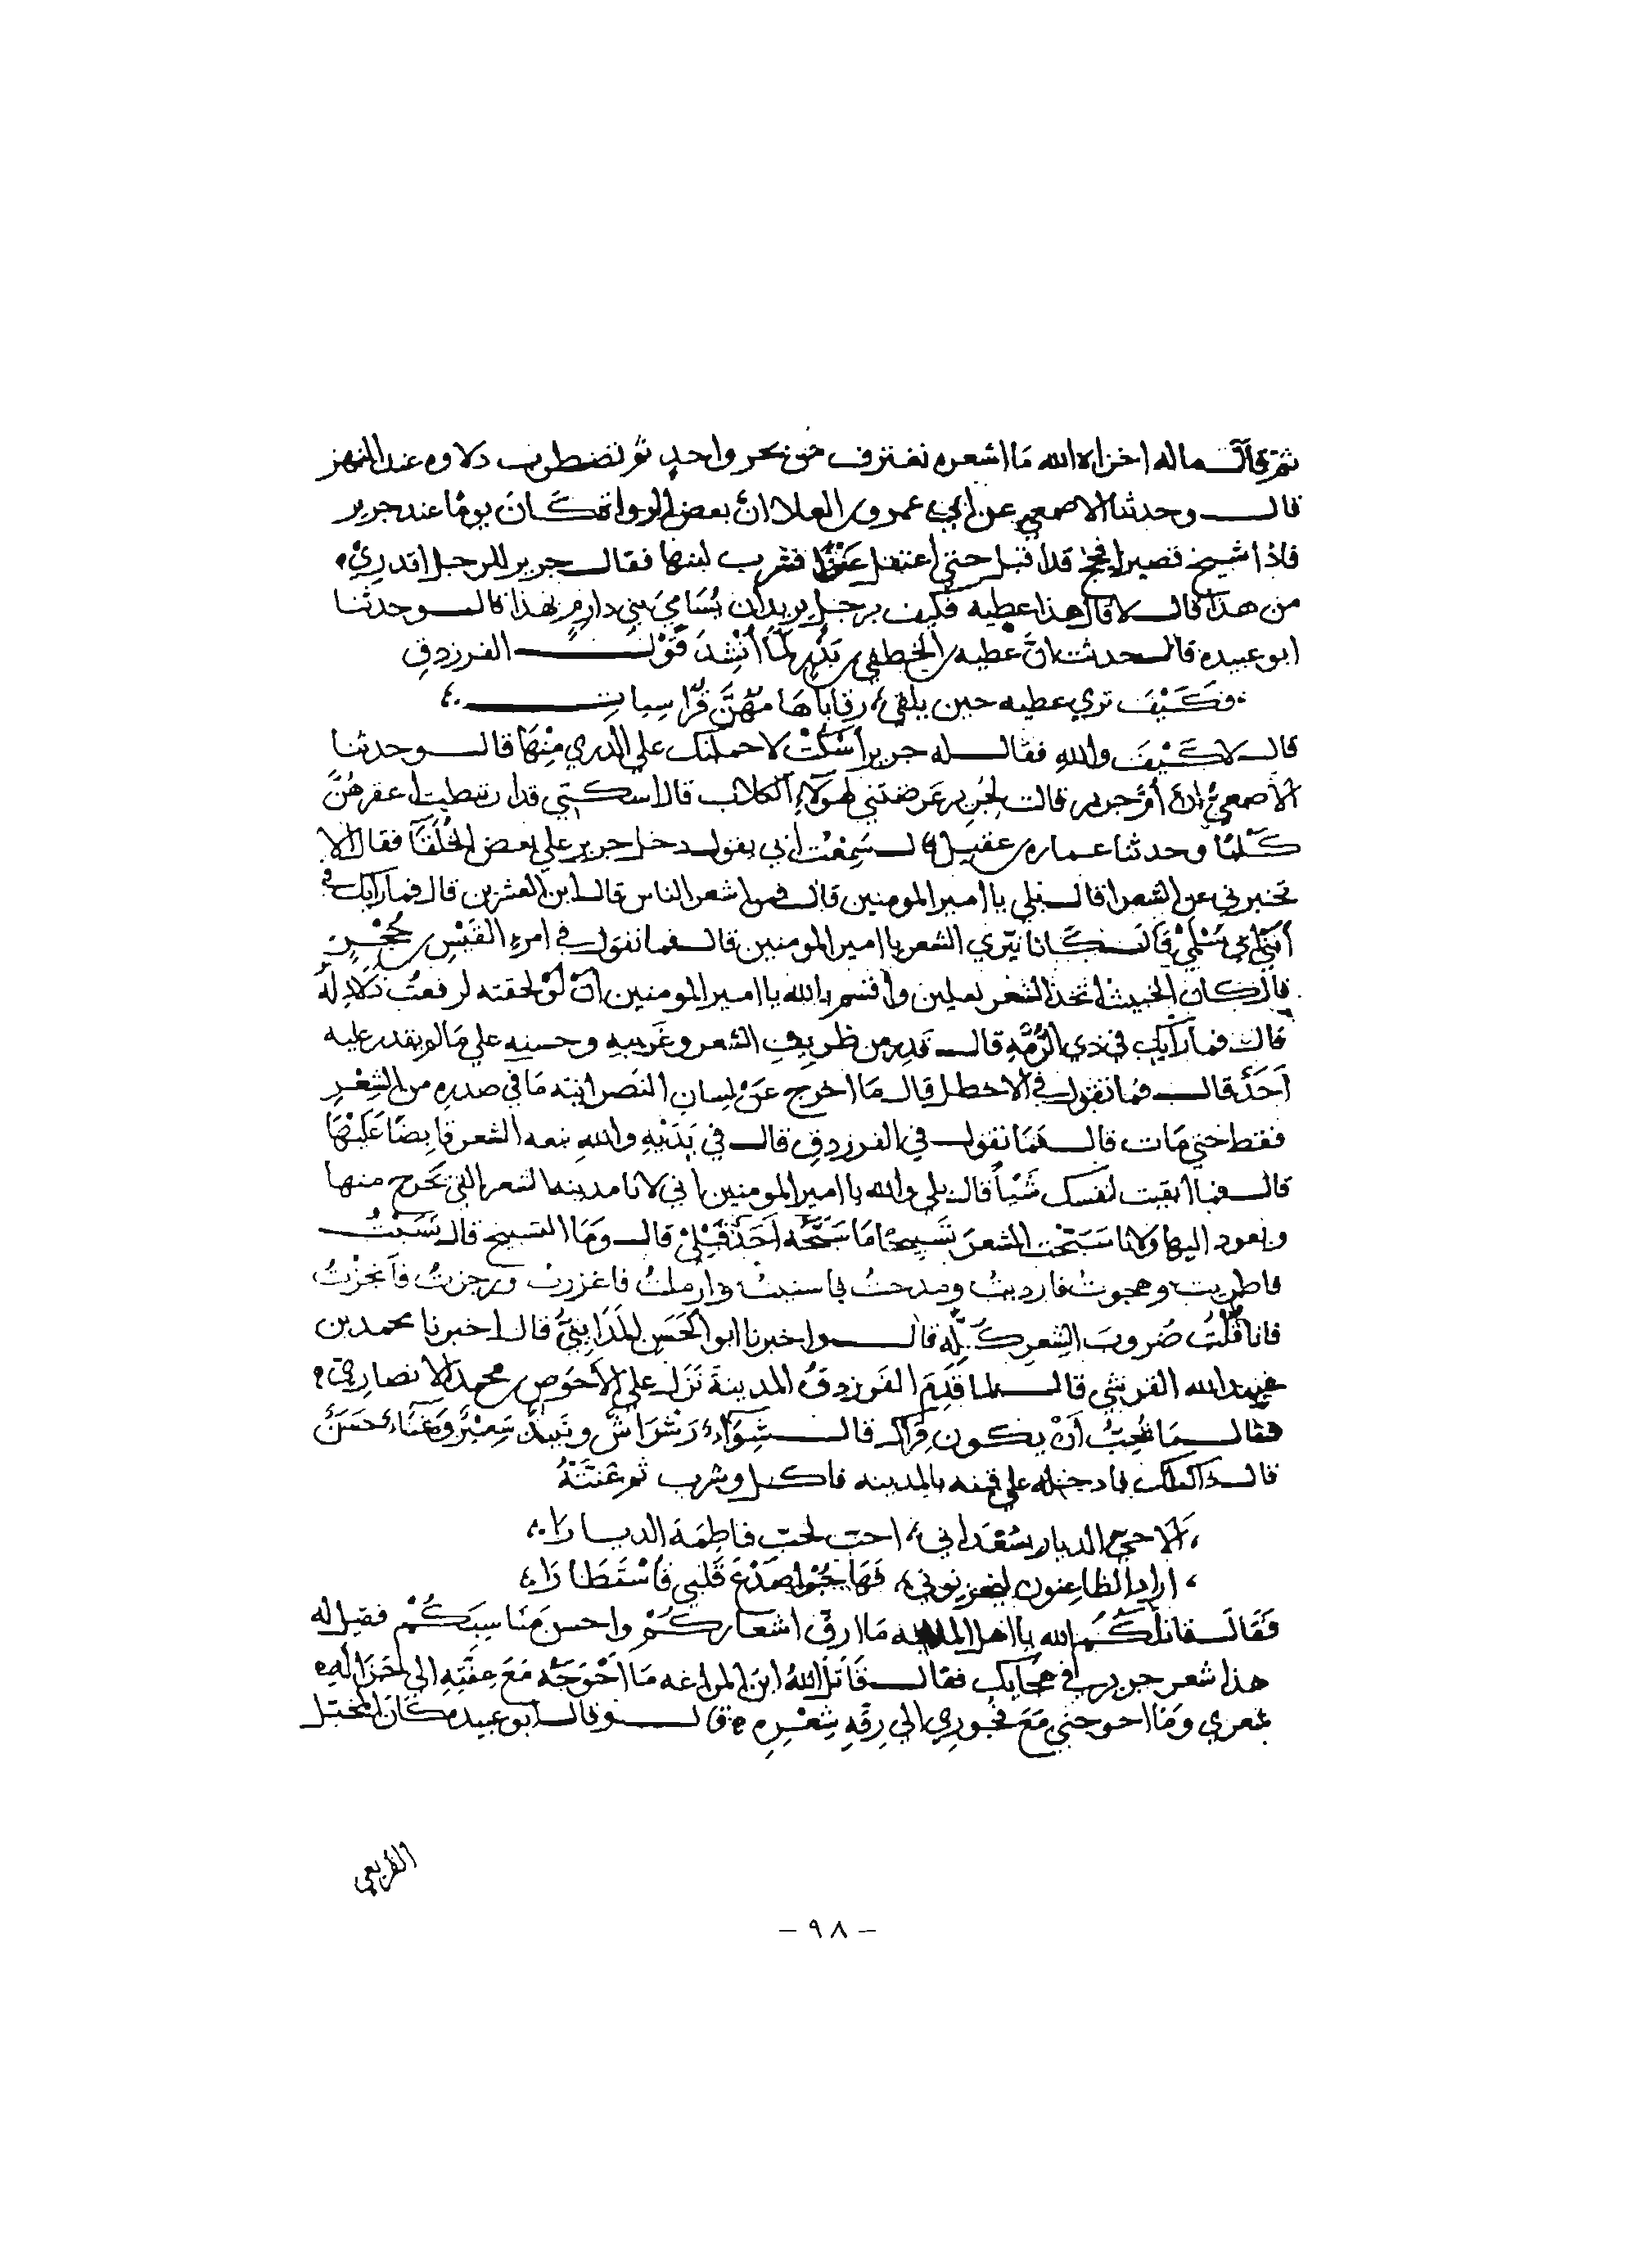 ثم قال ماله اخزاه الله ما اشعره نغترف من بحر واحد ثم تضطرب دلاوه عند النهز
قال وحدثنا الاصمعي عن ابي عمرو بن العلا ان بعض الرواة كان يوما عند جرير
فاذا شيخ قصير افحج قد اقبل حتي اعتقل عنزا فشرب لبنها فقال جرير للرجل اتدري
من هذا قال لا قال هذا عطيه فكيف برجل يريد ان يسامي بني دارم بهذا قال وحدثنا
ابو عبيده قال حدثت ان عطيه بن الخطفي بن بدر لما أنشد قول الفرزدق
فكيف تري عطيه حين يلقي رقابا هامهن قراسيات
قال لا كيف والله فقال له جرير أسكت لاحملنك علي الذري منها قال وحدثنا
الاصمعي ان أم جرير قالت لجرير عرضتني لهولاء الكلاب قال اسكتي قد ارتبطت اعقرهن
كلبا وحدثنا عماره بن عقيل قال سمعت ابي يقول دخل جرير علي بعض الخلفا فقال الا
تخبرني عن الشعرا قال بلي يا امير المومنين قال فمن اشعر الناس قال ابن العشرين قال فما رايك في
ابني ابي سلمي قال كانا نيري الشعر يا امير المومنين قال فما تقول في امرء القيس بن حجر
قال كان الخبيث اتخذ الشعر نعلين وأقسم بالله يا امير المومنين أن لو لحقته لرفعت ذلاذله
قال فما رأيك في ذي الرمة قال قدر من ظريف الشعر وغريبه وحسنه علي ما لم يقدر عليه
أحد قال فما تقول في الاخطل قال ما اخرج عن لسان النصرانيه ما في صدره من الشعر
فقط حتي مات قال فما تقول في الفرزدق قال في يديه والله نبعه الشعر قابضا عليها
قال فما ابقيت لنفسك شيأ قال بلي والله يا امير المومنين اني لانا مدينه الشعر التي تخرج منها
ويعود اليها ولانا سبحت الشعر تسبيحا ما سبحه أحد قبلي قال وما التسبيح قال نسبت
فاطربت وهجوت فارديت ومدحت فاسنيت وارملت فاغزرت ورجزت فأبحرت
فانا قلت ضروب الشعر كله قال واخبرنا ابو الحسن المدايني قال اخبرنا محمد بن
عبيد الله القرشي قال لما قدم الفرزدق المدينة نزل علي الأحوص بن محمد الانصاري
فقال ما تحب أن يكون قراك قال شواء رشراش ونبيذ سعير وغناء حسن
قال ذاك لك فادخله علي قينه بالمدينه فاكل وشرب ثم غنته
ألا حي الديار بسعد اني احب لحب فاطمة الديارا
اراد الظاعنون ليحزنوني فهاجوا صدع قلبي فاستطارا
فقال قاتلكم الله يا اهل المدينه ما ارق اشعاركم واحسن مناسبكم فقيل له
هذا شعر جرير في هجايك فقال قاتل الله ابن المراغه ما أحوجه مع عفته الي جزاله
شعري وما احوجني مع فجوري الي رقه شعره قال وقال ابو عبيده كان المخبل
القريعي
- ٩٨ -